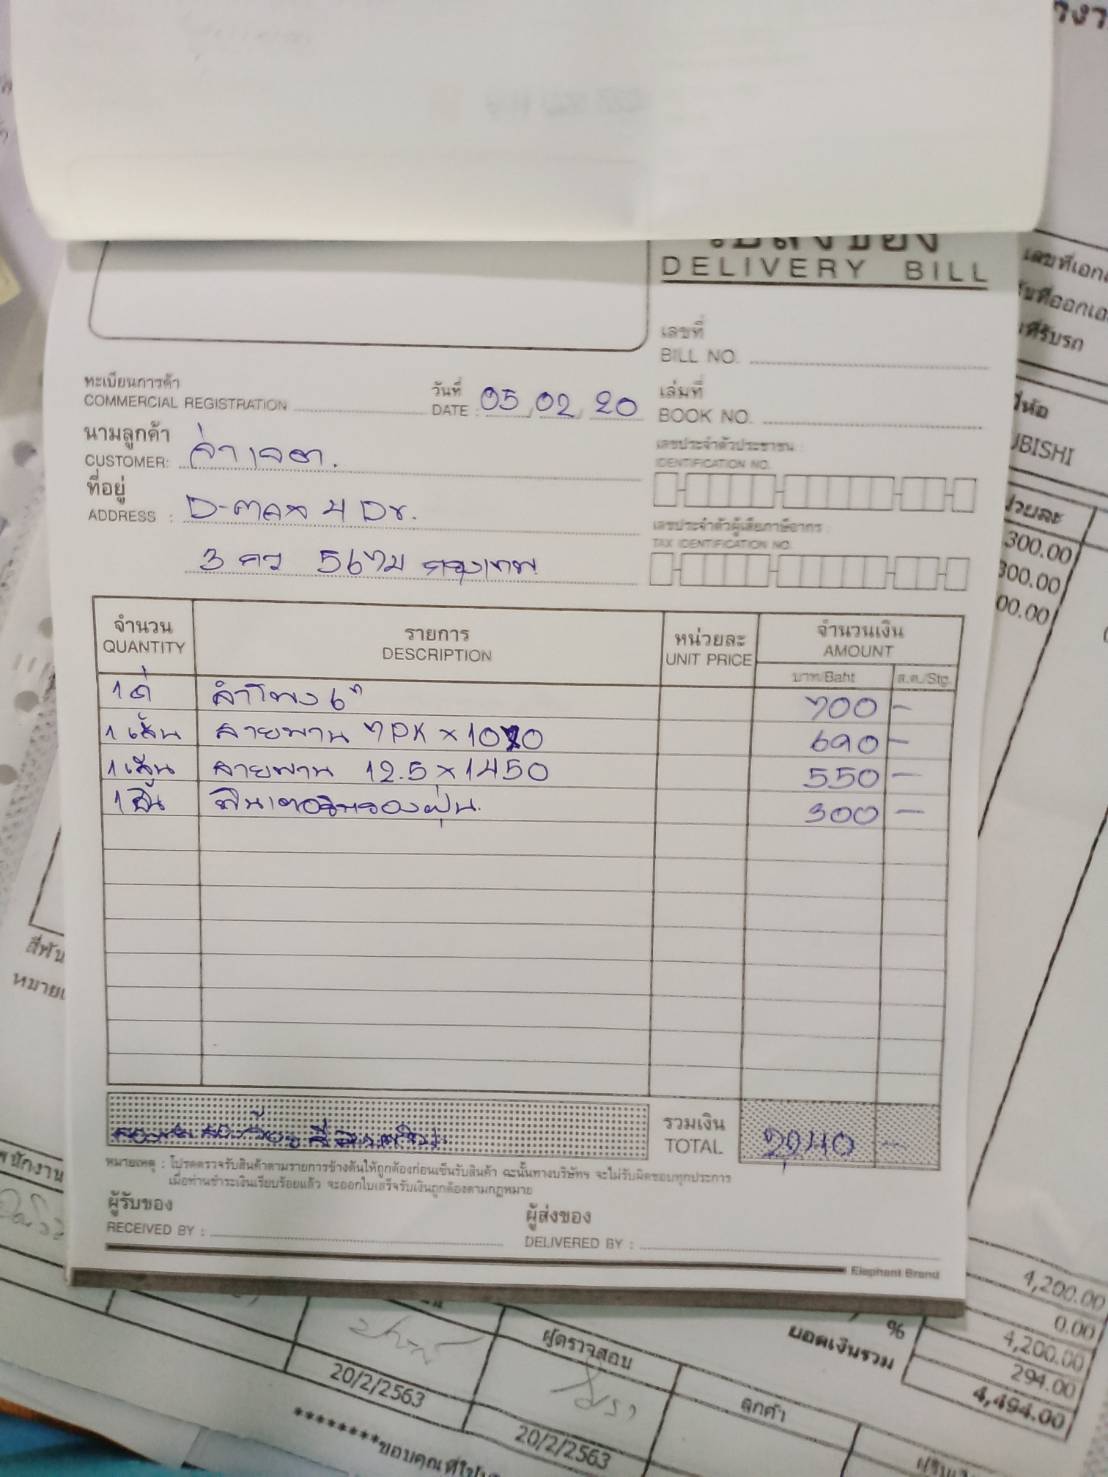 ใบส่งของ
DELIVERY BILL
เลขที่
BILL NO.
ทะเบียนการค้า
COMMERCIAL REGISTRATION
วันที่
DATE : 05 / 02 / 20
เล่มที่
BOOK NO.
นามลูกค้า
CUSTOMER:
เลขประจำตัวประชาชน :
IDENTIFICATION NO.
ที่อยู่
ADDRESS : D-แมค 4 Dr.
เลขประจำตัวผู้เสียภาษีอากร :
TAX IDENTIFICATION NO.
กรุงเทพ
จำนวน
QUANTITY
รายการ
DESCRIPTION
หน่วยละ
UNIT PRICE
จำนวนเงิน
AMOUNT
บาท/Baht
ส.ต./Stg.
ลำโพง 6" 700 -
1 เส้น สายพาน 7PK × 1020 690 -
1 เส้น สายพาน 12.5 × 1450 550 -
1 ชิ้น ฟิลเตอร์กรองฝุ่น 300 -
รวมเงิน
TOTAL
2,240 -
หมายเหตุ : โปรดตรวจรับสินค้าตามรายการข้างต้นให้ถูกต้องก่อนเซ็นรับสินค้า ฉะนั้นทางบริษัทฯ จะไม่รับผิดชอบทุกประการ
เมื่อท่านชำระเงินเรียบร้อยแล้ว จะออกใบเสร็จรับเงินถูกต้องตามกฎหมาย
ผู้รับของ
RECEIVED BY :
ผู้ส่งของ
DELIVERED BY :
Elephant Brand
ยี่ห้อ
UBISHI
หน่วยละ
300.00
300.00
00.00
4,200.00
0.00
%
4,200.00
ยอดเงินรวม
294.00
4,494.00
ผู้ตรวจสอบ
ลูกค้า
20/2/2563
20/2/2563